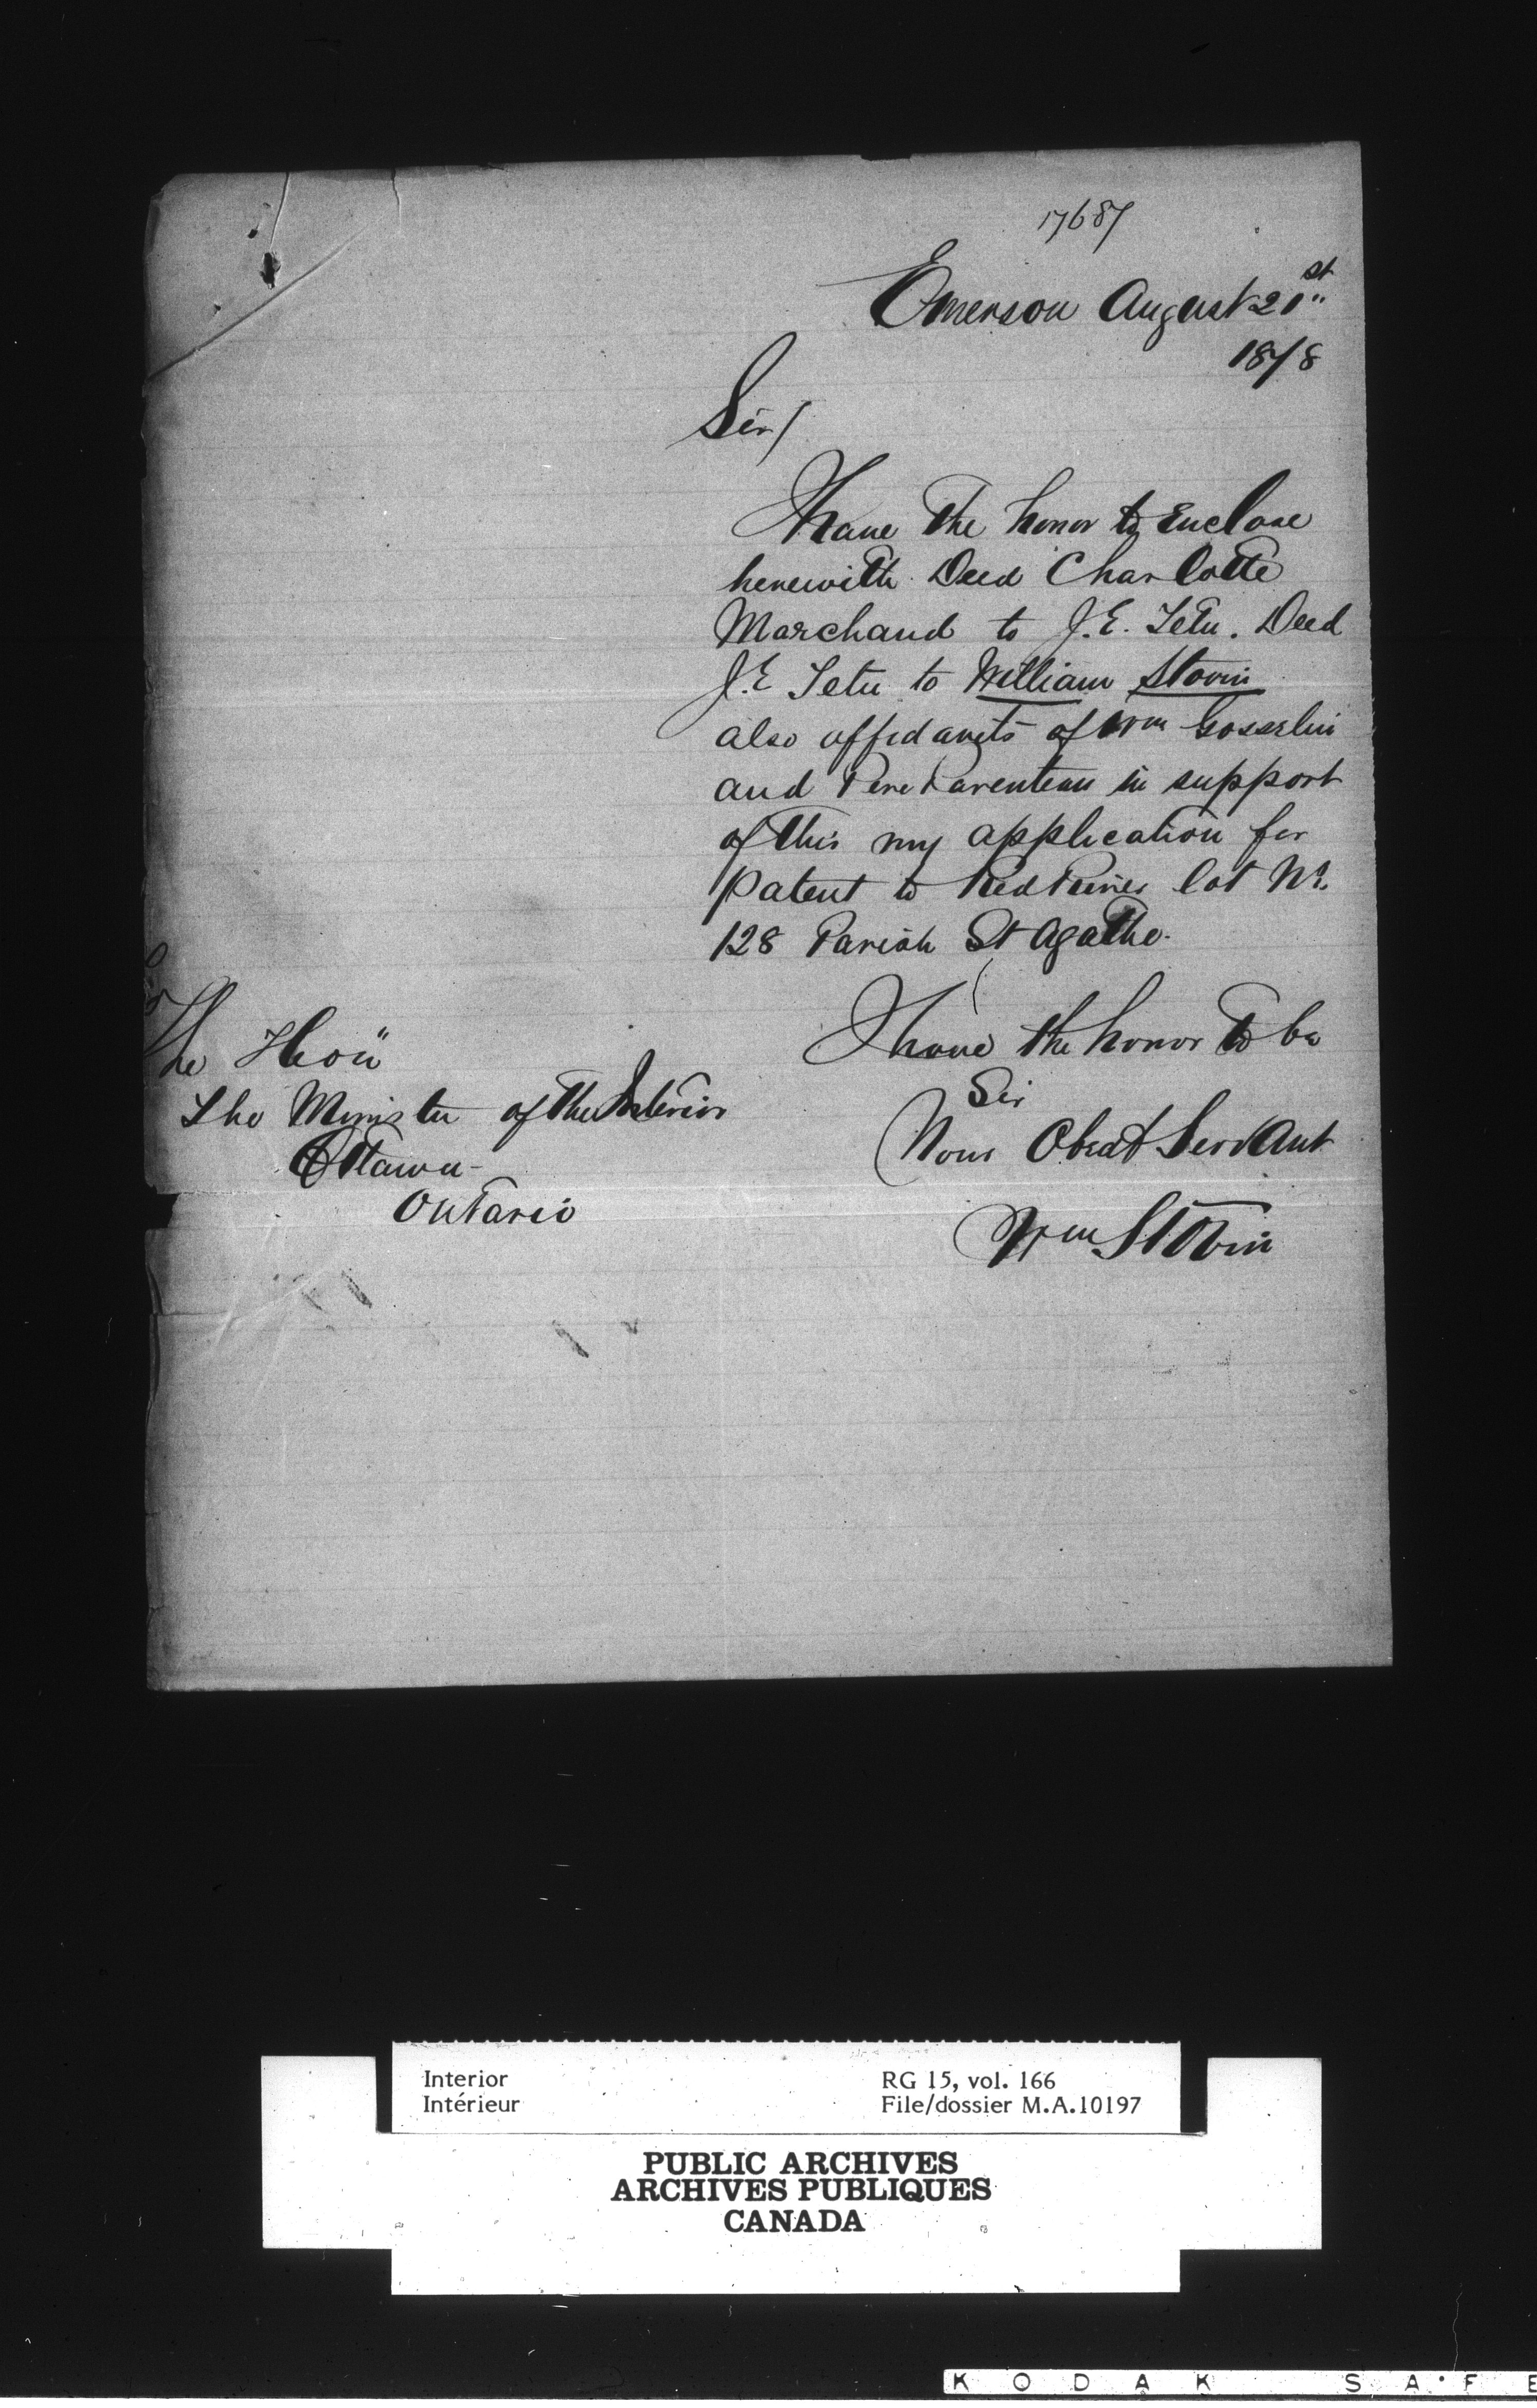 17687
Emerson August 21st
1878
Sir/
I have the honor to Enclose
herewith Deed Charlotte
Marchand to J.E. Tetu. Deed
J.E Tetu to William Stovin
also affidavits of Wm Gosselin
and Pere Parenteau in support
of this my application for
Patent to Red River lot No.
128 Parish St Agathe.
I have the honor to be
Sir
Your Obedt Servant
Wm Stovin
The Hon"
The Minister of the Interior
Ottawa-
Ontario
Interior
Intérieur
RG 15, vol. 166
File/dossier M.A.10197
PUBLIC ARCHIVES
ARCHIVES PUBLIQUES
CANADA
KODAK SAFE